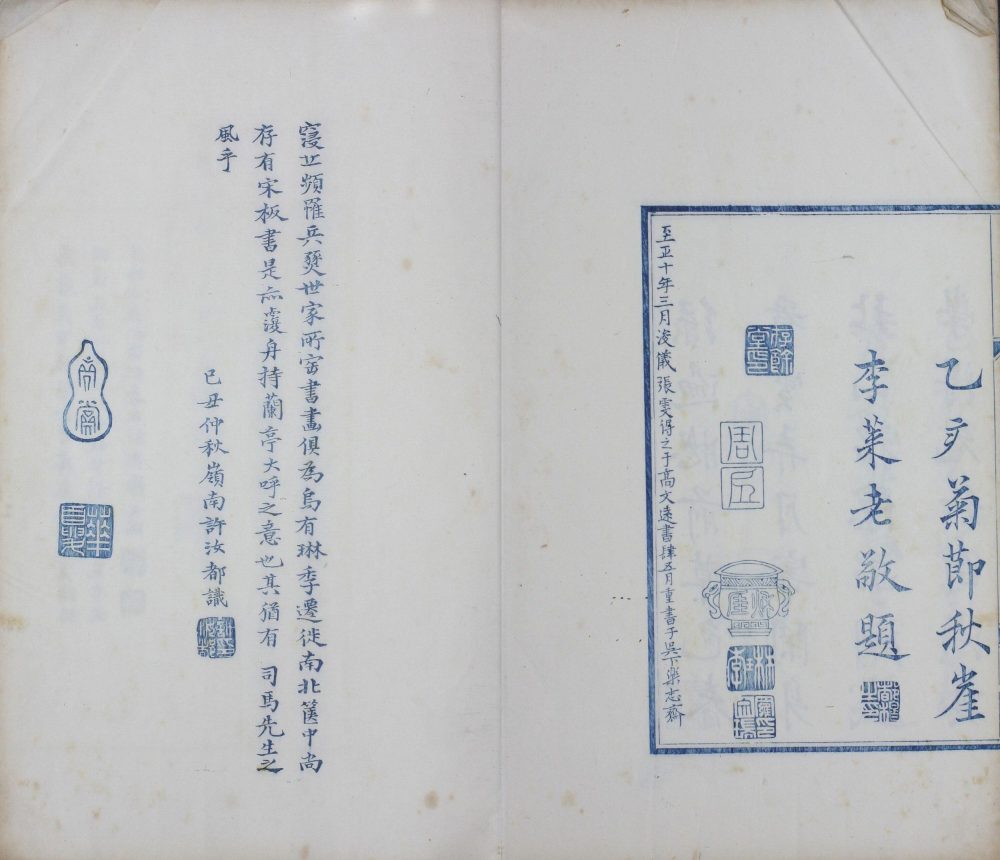 乙亥菊節秋崖
李萊老敬題
至正十年三月浚儀張雯得之于高文遠書肆五月重書于吳下樂志齋
存除堂印
周氏
林季
寖世頻罹兵燹世家所寶書畫俱為烏有琳季遷徙南北篋中尚
存有宋板書是亦覆舟持蘭亭大呼之意也其猶有司馬先生之
風乎
己丑仲秋嶺南許汝都識
許印汝都